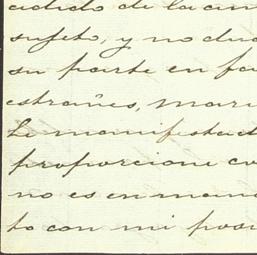 adido de la am
sujeto, y no dud
su parte en fa
estrañes, mari
Le manifestad
proporcione co
no es en mane
to con mi posi